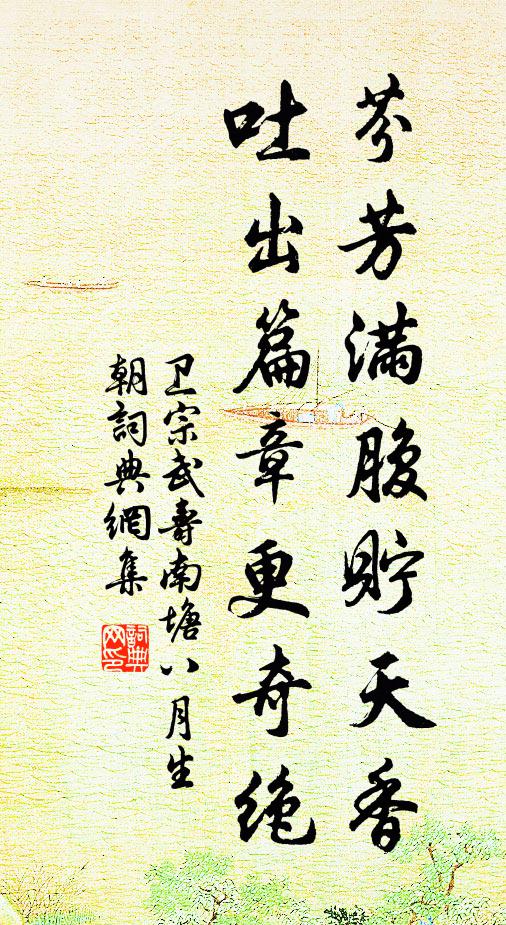 芬芳满腹贮天香
吐出篇章更奇绝
卫宗武寿南塘八月生
朝詞典網集
詞典
网印